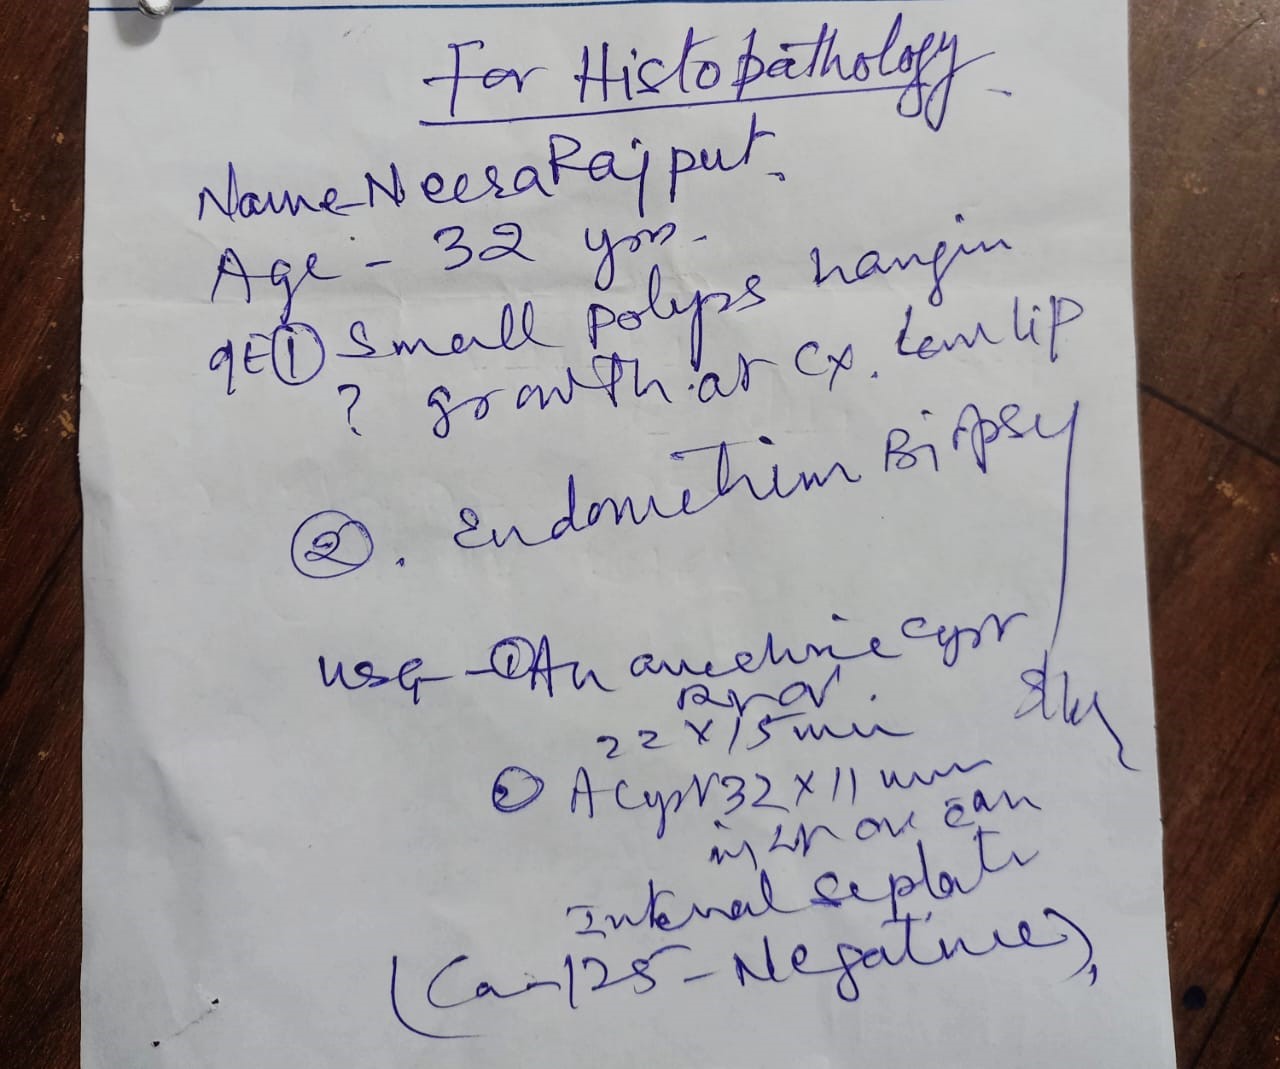 For Histopathology
Name-Neera Rajput.
Age - 32 yrs.
① Small polyps hangin
? growth at Cx. lip
②. Endometrium Biopsy
USG - ① An anechoic Cyst
22 x 15 mm
② A Cyst 32 x 11 mm
in
Internal Septate
(Ca-125 - Negative),